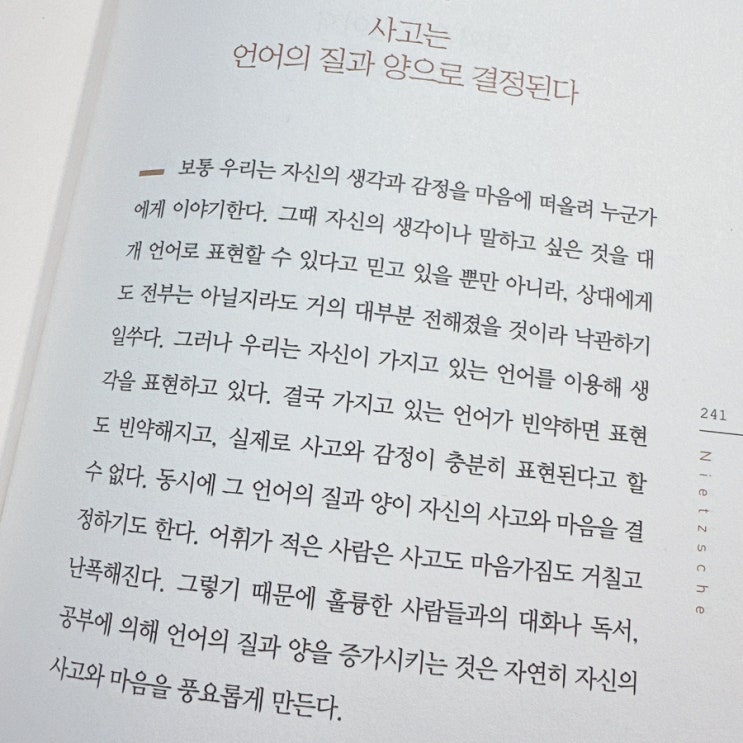 사고는
언어의 질과 양으로 결정된다
보통 우리는 자신의 생각과 감정을 마음에 떠올려 누군가
에게 이야기한다. 그때 자신의 생각이나 말하고 싶은 것을 대
개 언어로 표현할 수 있다고 믿고 있을 뿐만 아니라, 상대에게
도 전부는 아닐지라도 거의 대부분 전해졌을 것이라 낙관하기
일쑤다. 그러나 우리는 자신이 가지고 있는 언어를 이용해 생
각을 표현하고 있다. 결국 가지고 있는 언어가 빈약하면 표현
도 빈약해지고, 실제로 사고와 감정이 충분히 표현된다고 할
수 없다. 동시에 그 언어의 질과 양이 자신의 사고와 마음을 결
정하기도 한다. 어휘가 적은 사람은 사고도 마음가짐도 거칠고
난폭해진다. 그렇기 때문에 훌륭한 사람들과의 대화나 독서,
공부에 의해 언어의 질과 양을 증가시키는 것은 자연히 자신의
사고와 마음을 풍요롭게 만든다.
241
Nietzsche